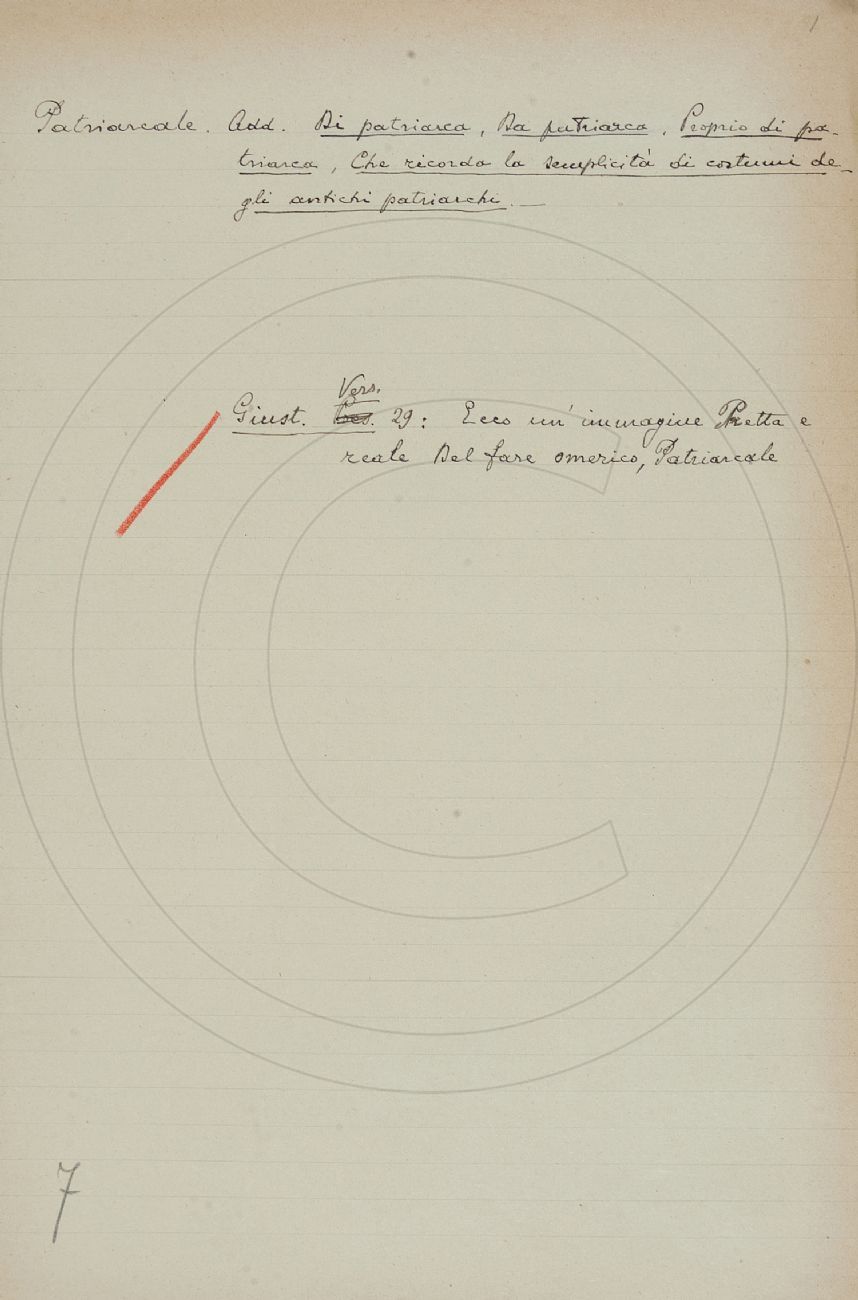 1
Patriarcale. Add. Di patriarca, Da patriarca, Proprio di pa-
triarca, Che ricorda la semplicità di costumi de-
gli antichi patriarchi. —
Vers.
Giust. 29: Ecco un' immagine Pretta e
reale Del fare omerico, Patriarcale
7